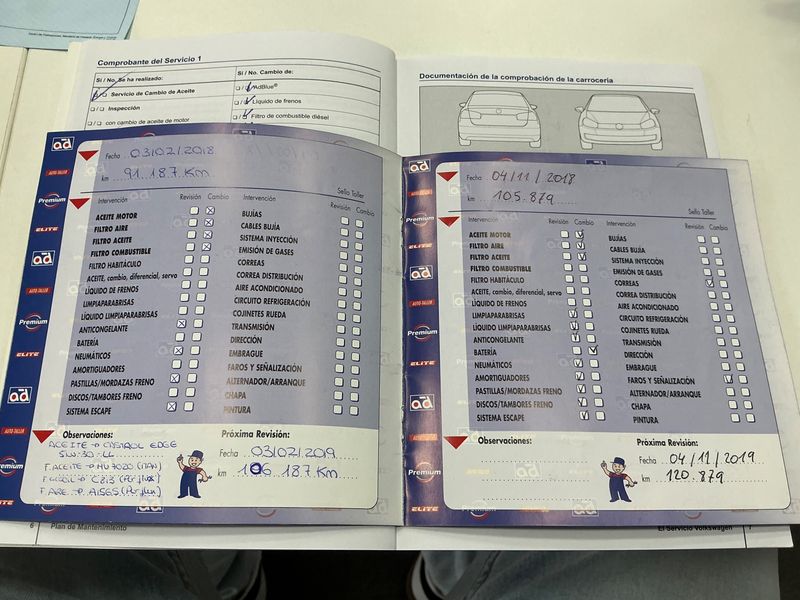 Comprobante del Servicio 1
Sí / No. Se ha realizado:
Servicio de Cambio de Aceite
Inspección
con cambio de aceite de motor
Sí / No. Cambio de:
AdBlue®
Líquido de frenos
Filtro de combustible diésel
Documentación de la comprobación de la carrocería
ad
AUTO-TALLER
Premium
ELITE
ad
AUTO-TALLER
Premium
ELITE
ad
AUTO-TALLER
Premium
ELITE
Fecha 03/02/2018
km 91.187 Km
Sello Taller
Intervención Revisión Cambio
ACEITE MOTOR
FILTRO AIRE
FILTRO ACEITE
FILTRO COMBUSTIBLE
FILTRO HABITÁCULO
ACEITE, cambio, diferencial, servo
LÍQUIDO DE FRENOS
LIMPIAPARABRISAS
LÍQUIDO LIMPIAPARABRISAS
ANTICONGELANTE
BATERÍA
NEUMÁTICOS
AMORTIGUADORES
PASTILLAS/MORDAZAS FRENO
DISCOS/TAMBORES FRENO
SISTEMA ESCAPE
Intervención Revisión Cambio
BUJÍAS
CABLES BUJÍA
SISTEMA INYECCIÓN
EMISIÓN DE GASES
CORREAS
CORREA DISTRIBUCIÓN
AIRE ACONDICIONADO
CIRCUITO REFRIGERACIÓN
COJINETES RUEDA
TRANSMISIÓN
DIRECCIÓN
EMBRAGUE
FAROS Y SEÑALIZACIÓN
ALTERNADOR/ARRANQUE
CHAPA
PINTURA
Observaciones:
ACEITE → CASTROL EDGE
5W-30-LL
F. ACEITE → HU 7020 (MAN)
F. AIRE →
Próxima Revisión:
Fecha 03/02/2019
km 106.187 Km
ad
AUTO-TALLER
Premium
ELITE
ad
AUTO-TALLER
Premium
ELITE
ad
AUTO-TALLER
Premium
ELITE
Fecha 04/11/2018
km 105.879
Sello Taller
Intervención Revisión Cambio
ACEITE MOTOR
FILTRO AIRE
FILTRO ACEITE
FILTRO COMBUSTIBLE
FILTRO HABITÁCULO
ACEITE, cambio, diferencial, servo
LÍQUIDO DE FRENOS
LIMPIAPARABRISAS
LÍQUIDO LIMPIAPARABRISAS
ANTICONGELANTE
BATERÍA
NEUMÁTICOS
AMORTIGUADORES
PASTILLAS/MORDAZAS FRENO
DISCOS/TAMBORES FRENO
SISTEMA ESCAPE
Intervención Revisión Cambio
BUJÍAS
CABLES BUJÍA
SISTEMA INYECCIÓN
EMISIÓN DE GASES
CORREAS
CORREA DISTRIBUCIÓN
AIRE ACONDICIONADO
CIRCUITO REFRIGERACIÓN
COJINETES RUEDA
TRANSMISIÓN
DIRECCIÓN
EMBRAGUE
FAROS Y SEÑALIZACIÓN
ALTERNADOR/ARRANQUE
CHAPA
PINTURA
Observaciones:
Próxima Revisión:
Fecha 04/11/2019
km 120.879
6 Plan de Mantenimiento
El Servicio Volkswagen 7